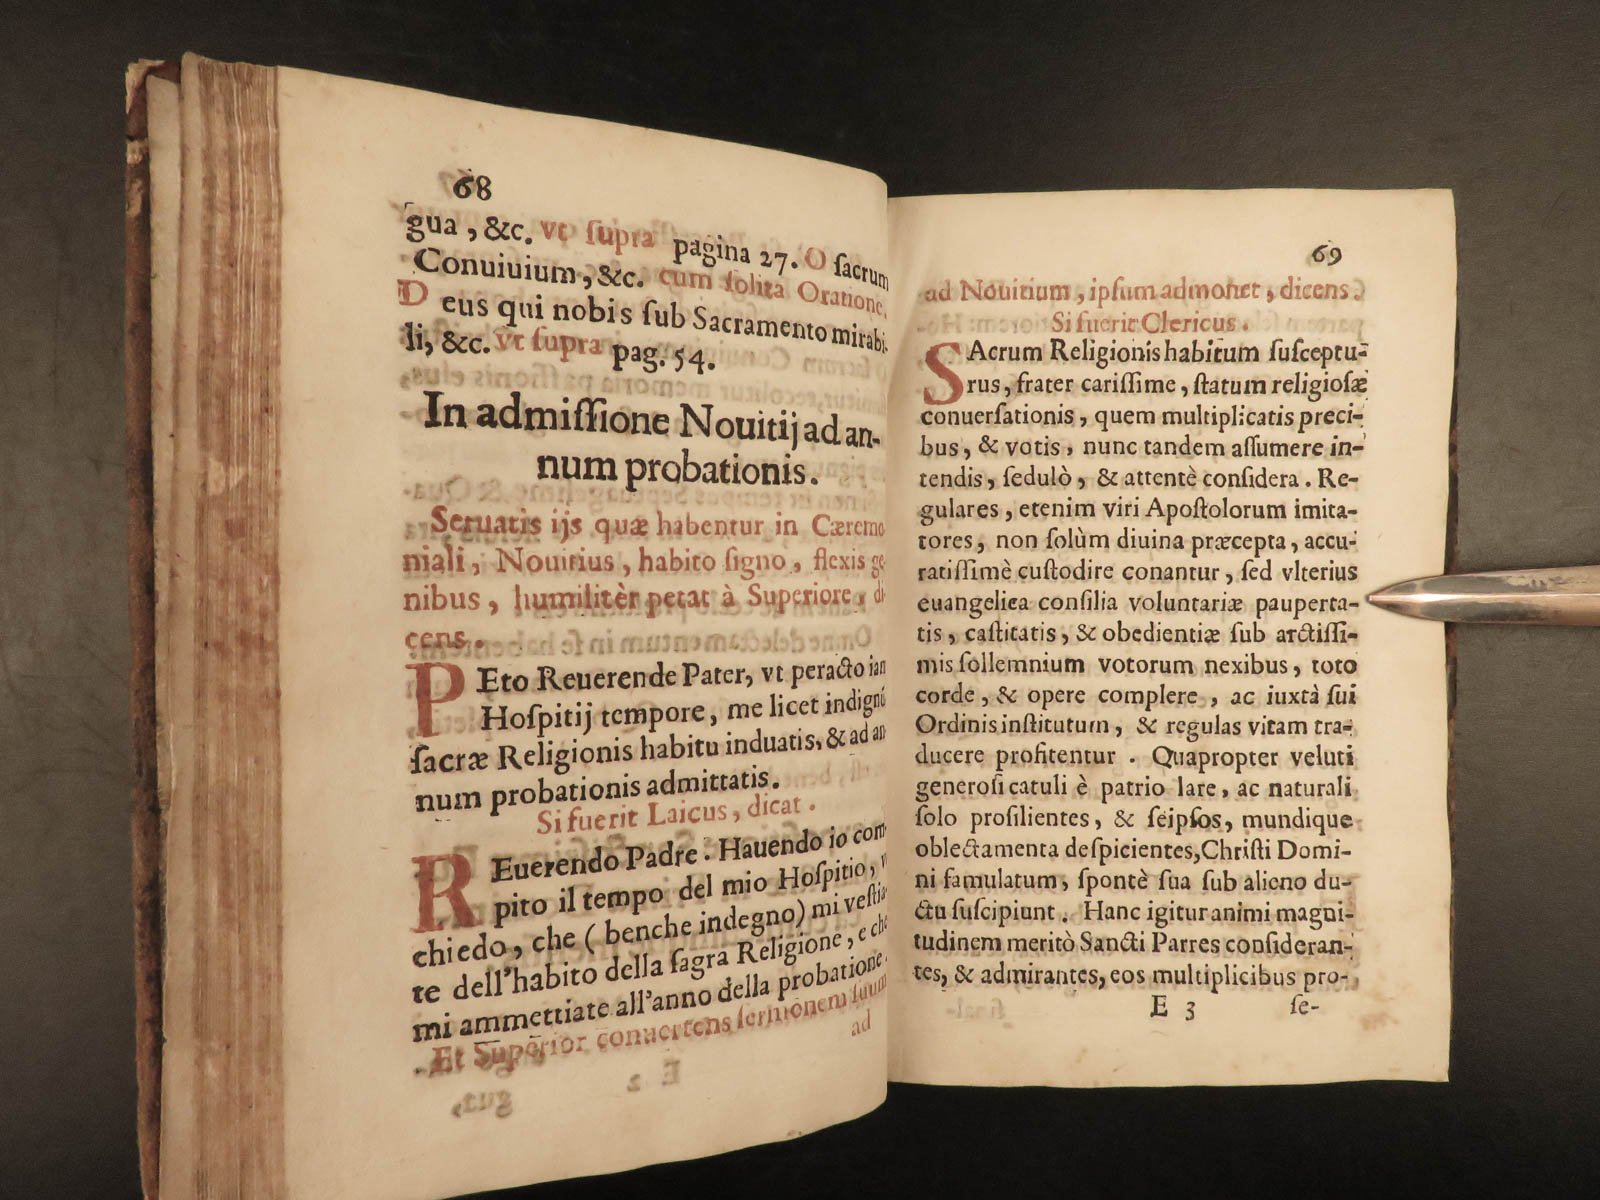 68
gua, &c. vt ſupra pagina 27. O ſacrum
Conuiuium, &c. cum ſolita Oratione.
Deus qui nobis ſub Sacramento mirabi-
li, &c. vt ſupra pag. 54.
In admiſſione Nouitij ad an-
num probationis.
Seruatis ijs quæ habentur in Cæremo
niali, Nouitius, habito ſigno, flexis ge
nibus, humilitèr petat à Superiore, di
cens.
PEto Reuerende Pater, vt peracto iam
Hoſpitij tempore, me licet indignũ
ſacræ Religionis habitu induatis, & ad an
num probationis admittatis.
Si fuerit Laicus, dicat.
REuerendo Padre. Hauendo io com
pito il tempo del mio Hoſpitio, v
chiedo, che ( benche indegno) mi veſtia
te dell'habito della ſagra Religione, e che
mi ammettiate all'anno della probatione.
Et Superior conuertens ſermonem ſuum
ad
69
ad Nouitium, ipſum admonet, dicens.
Si fuerit Clericus.
SAcrum Religionis habitum ſuſceptu-
rus, frater cariſſime, ſtatum religioſæ
conuerſationis, quem multiplicatis preci-
bus, & votis, nunc tandem aſſumere in-
tendis, ſedulò, & attentè conſidera. Re-
gulares, etenim viri Apoſtolorum imita-
tores, non ſolùm diuina præcepta, accu-
ratiſſimè cuſtodire conantur, ſed vlterius
euangelica conſilia voluntariæ pauperta-
tis, caſtitatis, & obedientiæ ſub arctiſſi-
mis ſollemnium votorum nexibus, toto
corde, & opere complere, ac iuxtà ſui
Ordinis inſtitutum, & regulas vitam tra-
ducere profitentur. Quapropter veluti
generoſi catuli è patrio lare, ac naturali
ſolo proſilientes, & ſeipſos, mundique
oblectamenta deſpicientes, Chriſti Domi-
ni famulatum, ſpontè ſua ſub alieno du-
ctu ſuſcipiunt. Hanc igitur animi magni-
tudinem meritò Sancti Patres conſideran-
tes, & admirantes, eos multiplicibus pro-
E 3 ſe-